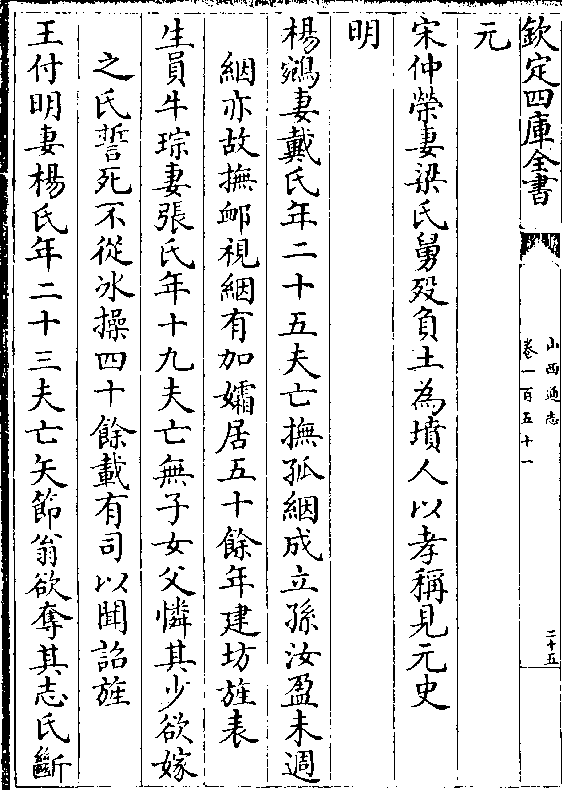 欽定四庫全書
山西通志
卷一百五十一
二十五
元
宋仲榮妻梁氏舅殁負土為墳人以孝稱見元史
明
楊鵷妻戴氏年二十五夫亡撫孤綑成立孫汝盈未週
綑亦故撫䘏視綑有加孀居五十餘年建坊旌表
生員牛琮妻張氏年十九夫亡無子女父憐其少欲嫁
之氏誓死不從冰操四十餘載有司以聞詔旌
王付明妻楊氏年二十三夫亡矢節翁欲奪其志氏斷